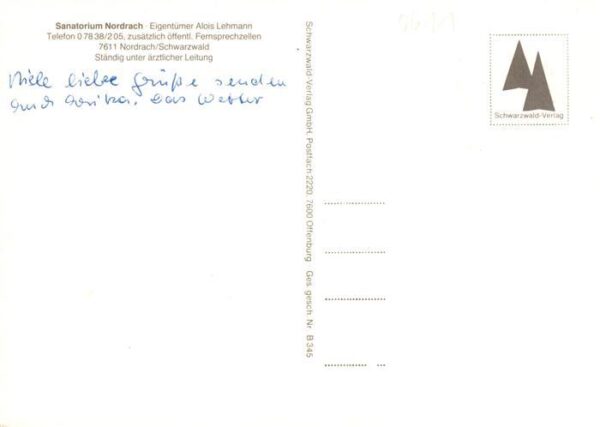 Sanatorium Nordrach · Eigentümer Alois Lehmann
Telefon 0 78 38/2 05, zusätzlich öffentl. Fernsprechzellen
7611 Nordrach/Schwarzwald
Ständig unter ärztlicher Leitung
Viele liebe Grüße senden
Das Wetter
Schwarzwald-Verlag GmbH, Postfach 2220, 7600 Offenburg · Ges. gesch. Nr. B 345
Schwarzwald-Verlag